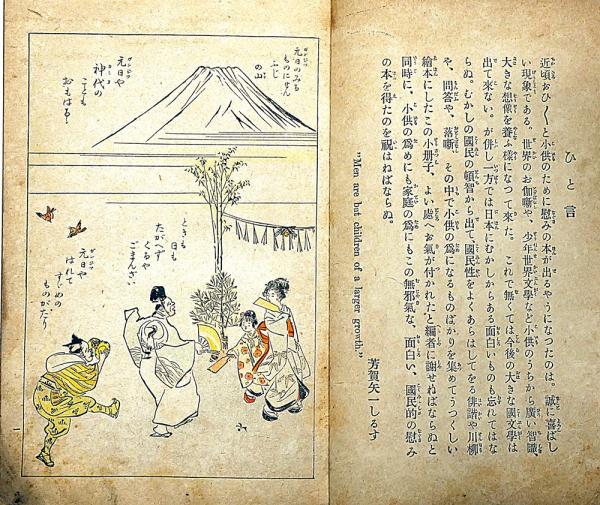 ひと言
近頃おひ〳〵と小供のために慰みの本が出るやうになつたのは。誠に喜ばし
い現象である。世界のお伽噺や、少年世界文學など小供のうちから廣い智識、
大きな想像を養ふ樣になつて來た。これで無くては今後の大きな國文學は
出て來ない。が併し一方では日本にむかしからある面白いものも忘れてはな
らぬ。むかしの國民の頓智から出て國民性をよくあらはしてをる俳諧や川柳
や、問答や、落噺、その中で小供の爲になるものばかりを集めてうつくしい
繪本にしたこの小册子、よい處へお氣が付かれたと編者に謝せねばならぬと
同時に、小供の爲めにも家庭の爲にもこの無邪氣な、面白い、國民的の慰み
の本を得たのを祝はねばならぬ。
"Men are but children of a larger growth."
芳賀矢一しるす
元日のみる
ものにせん
ふじ
の山
元日や
神代の
ことも
おもはるゝ
ときも
日も
たがへず
くるや
ごまんざい
元日や
はれて
すゞめの
ものがたり
一